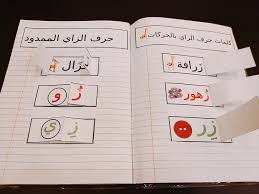 كلمات حرف الزاي بالحركات
زَرافة
زُهور
زِر
حرف الزاي الممدود
غزال
زُ و
زِ ي